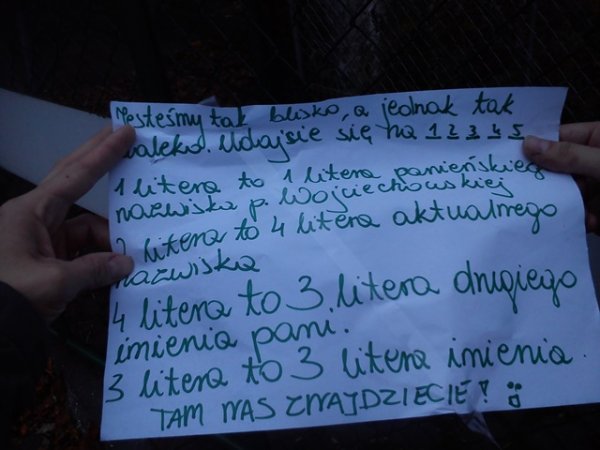 Jesteśmy tak blisko, a jednak tak
daleko. Udajcie się na 1 2 3 4 5
1 litera to 1 litera panieńskiego
nazwiska p. Wojciechowskiej
2 litera to 4 litera aktualnego
nazwiska
4 litera to 3 litera drugiego
imienia pani.
3 litera to 3 litera imienia.
TAM NAS ZNAJDZIECIE!